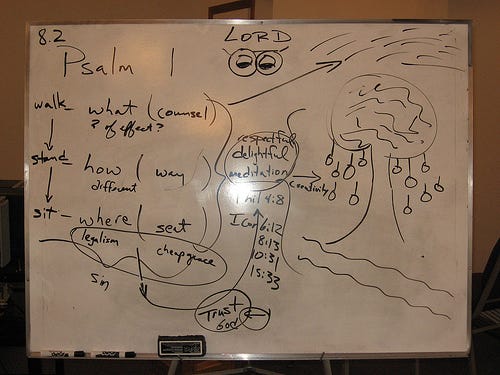 8.2
LORD
Psalm 1
walk - what (counsel)
? of effect?
stand - how (way)
different
sit - where (seat)
legalism
cheap grace
Sin
respectful
delightful
meditation
creativity
Phil 4:8
I Cor 6:12
8:13
10:31
15:33
Trust
God